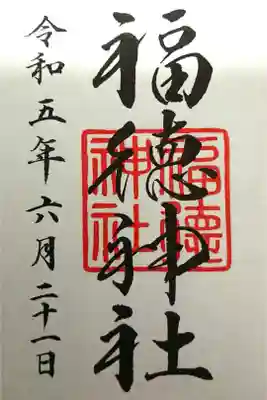 福徳神社
福德
神社
令和五年六月二十一日